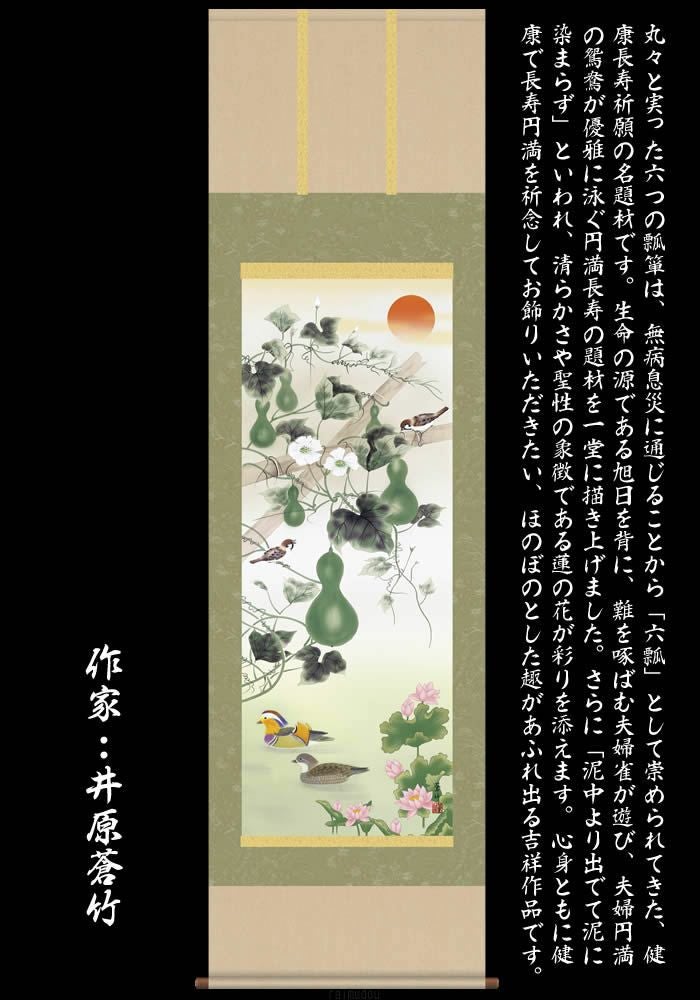 丸々と実った六つの瓢箪は、無病息災に通じることから「六瓢」として崇められてきた、健
康長寿祈願の名題材です。生命の源である旭日を背に、難を啄ばむ夫婦雀が遊び、夫婦円満
の鴛鴦が優雅に泳ぐ円満長寿の題材を一堂に描き上げました。さらに「泥中より出でて泥に
染まらず」といわれ、清らかさや聖性の象徴である蓮の花が彩りを添えます。心身ともに健
康で長寿円満を祈念してお飾りいただきたい、ほのぼのとした趣があふれ出る吉祥作品です。
作家：井原蒼竹